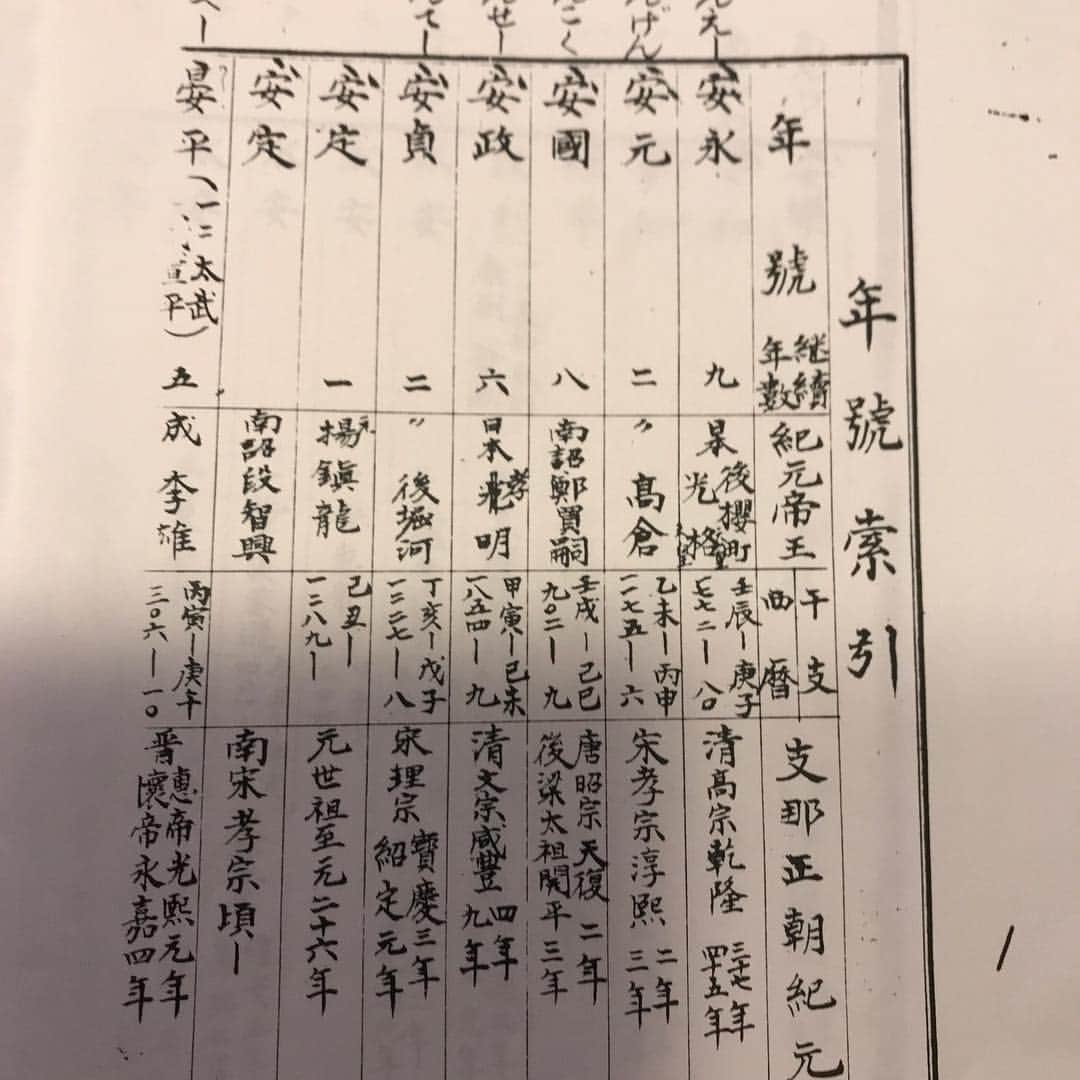 年號索引
年號 継續年數 紀元帝王 干支 西暦 支那正朝紀元
安永 九 後櫻町 光格 壬辰ー庚子 一七七二ー八〇 清高宗乾隆 三十七年 四十五年
安元 二 〃 高倉 乙未ー丙申 一一七五ー六 宋孝宗淳熙 二年 三年
安國 八 南詔鄭買嗣 壬戌ー己巳 九〇二ー九 唐昭宗天復二年 後梁太祖開平三年
安政 六 日本孝明 甲寅ー己未 一八五四ー九 清文宗咸豐 四年 九年
安貞 二 〃 後堀河 丁亥ー戊子 一二二七ー八 宋理宗 寶慶三年 紹定元年
安定 一 元 揚鎭龍 己丑ー 一二八九ー 元世祖至元二十六年
安定 南詔段智興 南宋孝宗頃ー
晏平 太武 平） 五 成 李雄 丙寅ー庚午 三〇六ー一〇 晋惠帝光熙元年 懷帝永嘉四年
えー
げん
こく
せー
てー
ー